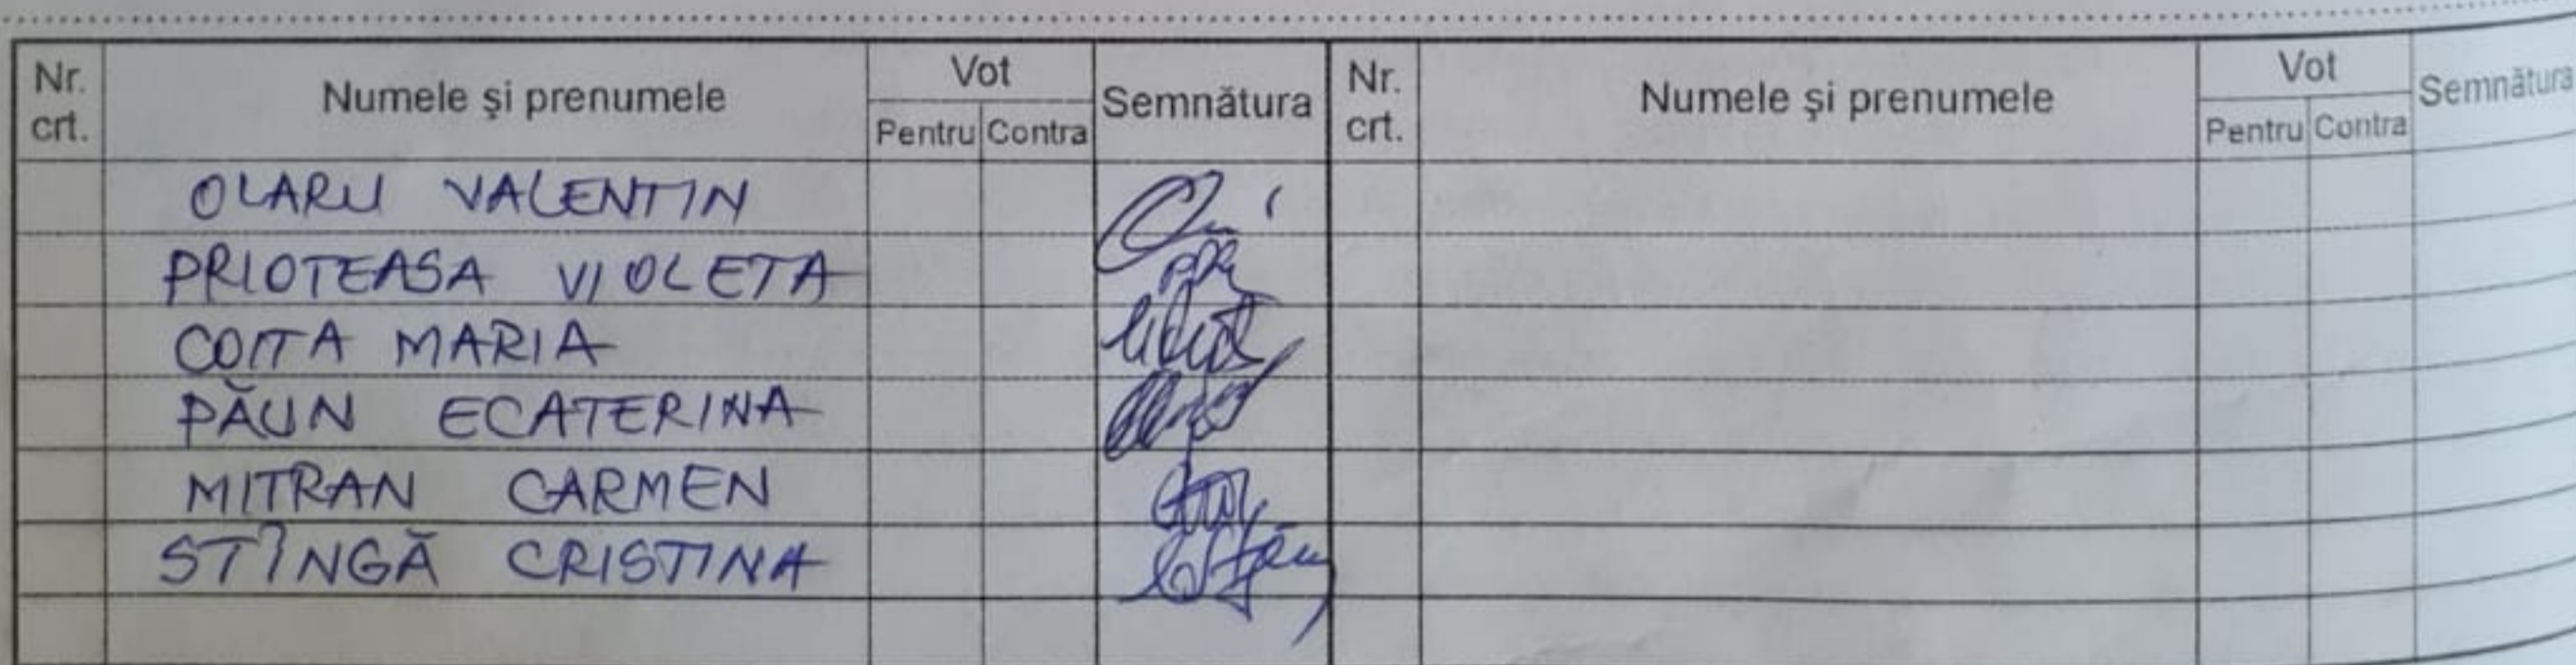 Nr. crt. Numele şi prenumele Vot Pentru Contra Semnătura Nr. crt. Numele şi prenumele Vot Pentru Contra Semnătura
OLARU VALENTIN
PRIOTEASA VIOLETA
COITA MARIA
PĂUN ECATERINA
MITRAN CARMEN
STÎNGĂ CRISTINA